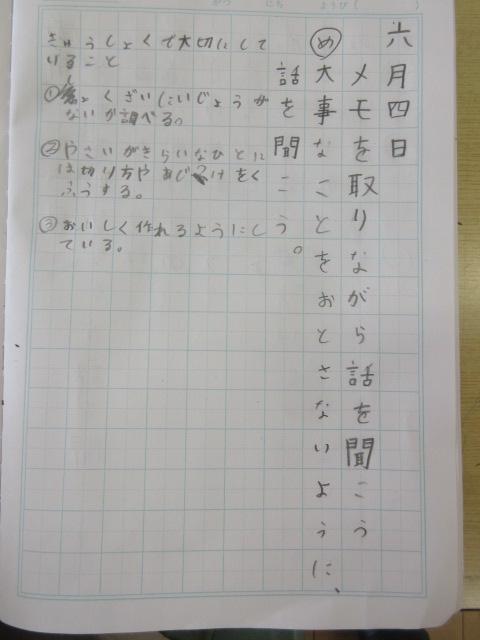 六月四日
メモを取りながら話を聞こう
め大事なことをおとさないように、
話を聞こう。
きゅうしょくで大切にして
いること
①しょくざいにいじょうが
ないか調べる。
②やさいがきらいなひとに
は切り方や あじつけをく
ふうする。
③おいしく作れるようにし
ている。